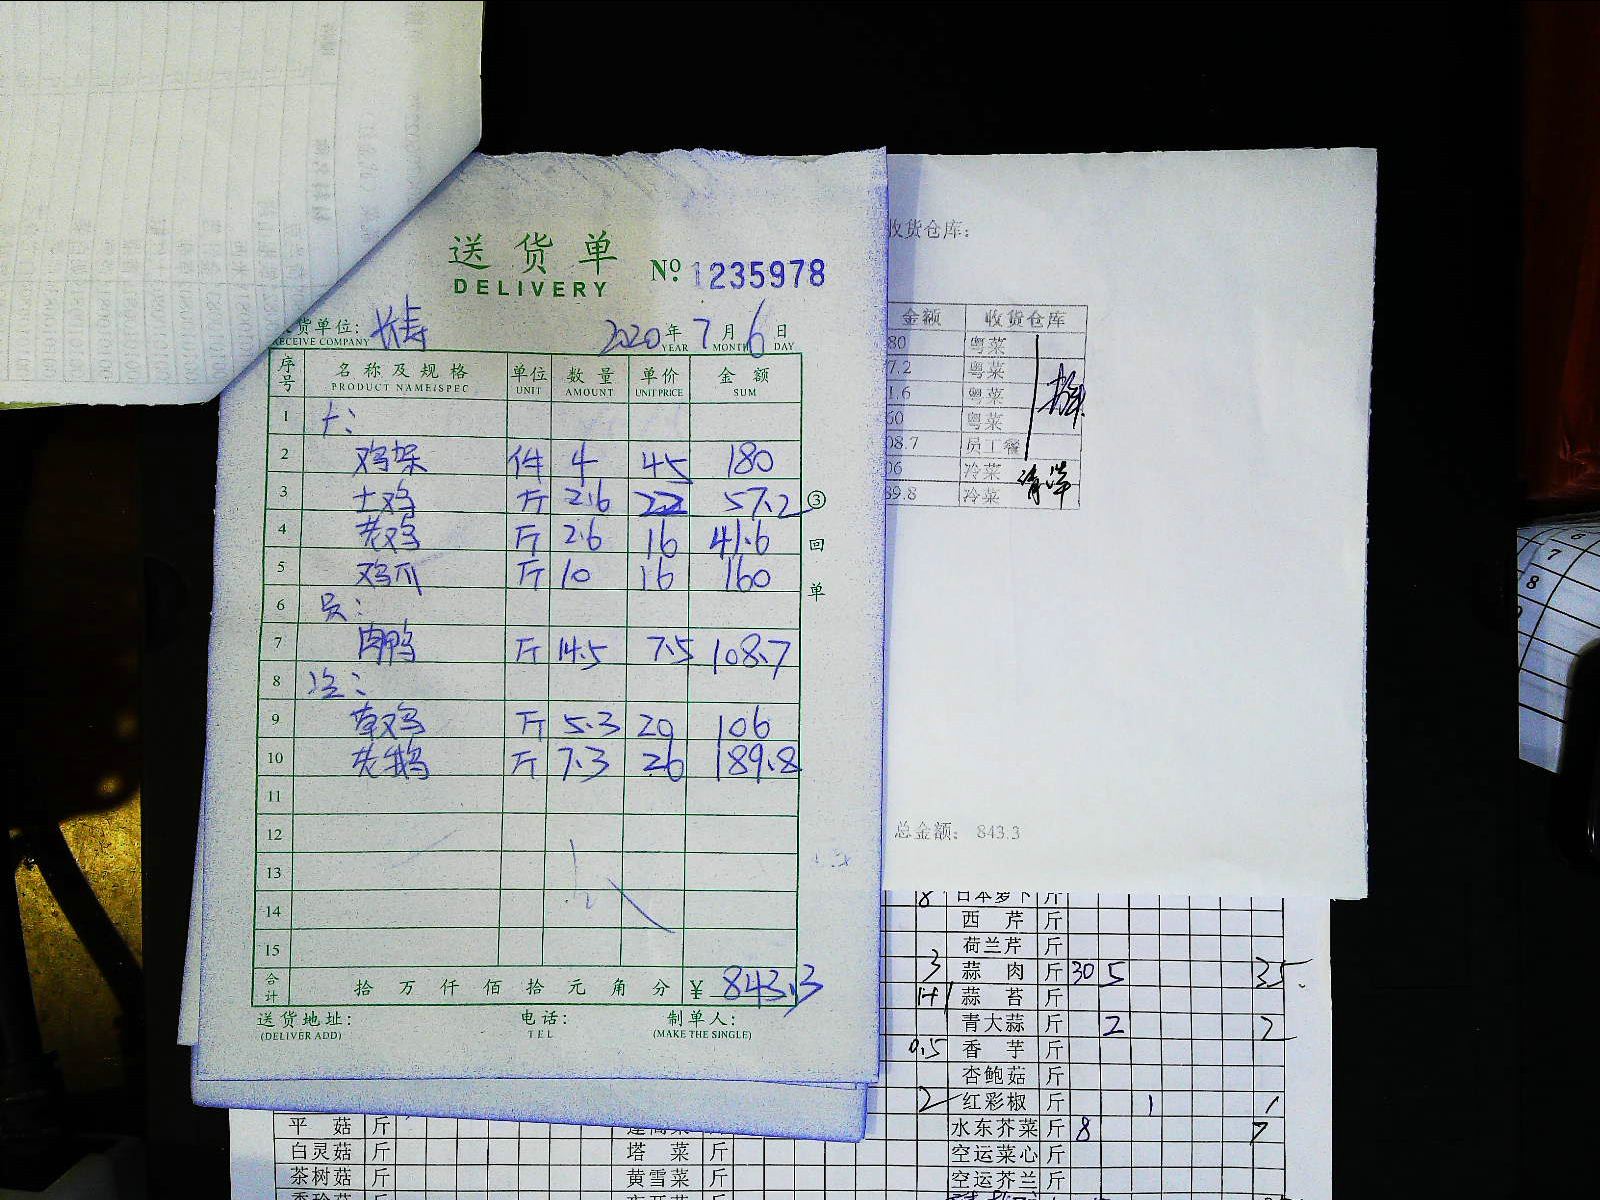 送货单
DELIVERY
№ 1235978
货单位: 长寿
RECEIVE COMPANY
2020年 7月 6日
YEAR MONTH DAY
序号 名称及规格 单位 数量 单价 金额
PRODUCT NAME\SPEC UNIT AMOUNT UNIT PRICE SUM
1
2 鸡架 件 4 45 180
3 土鸡 斤 2.6 22 57.2
4 老鸡 斤 2.6 16 41.6
5 鸡爪 斤 10 16 160
6 员:
7 肉鸭 斤 14.5 7.5 108.7
8 冷:
9 草鸡 斤 5.3 20 106
10 老鹅 斤 7.3 26 189.8
11
12
13
14
15
合计 拾 万 仟 佰 拾 元 角 分 ¥ 843.3
送货地址: 电话: 制单人:
(DELIVER ADD) TEL (MAKE THE SINGLE)
③回单
收货仓库:
金额 收货仓库
80 粤菜
7.2 粤菜
1.6 粤菜
60 粤菜
08.7 员工餐
06 冷菜
89.8 冷菜
总金额: 843.3
8 日本萝卜 斤
西芹 斤
荷兰芹 斤
3 蒜肉 斤 30 5 35
14 蒜苔 斤
青大蒜 斤 2 2
0.5 香芋 斤
杏鲍菇 斤
2 红彩椒 斤 1 1
水东芥菜 斤 8 7
空运菜心 斤
空运芥兰 斤
平菇 斤
白灵菇 斤 塔菜 斤
茶树菇 斤 黄雪菜 斤
6
7
8